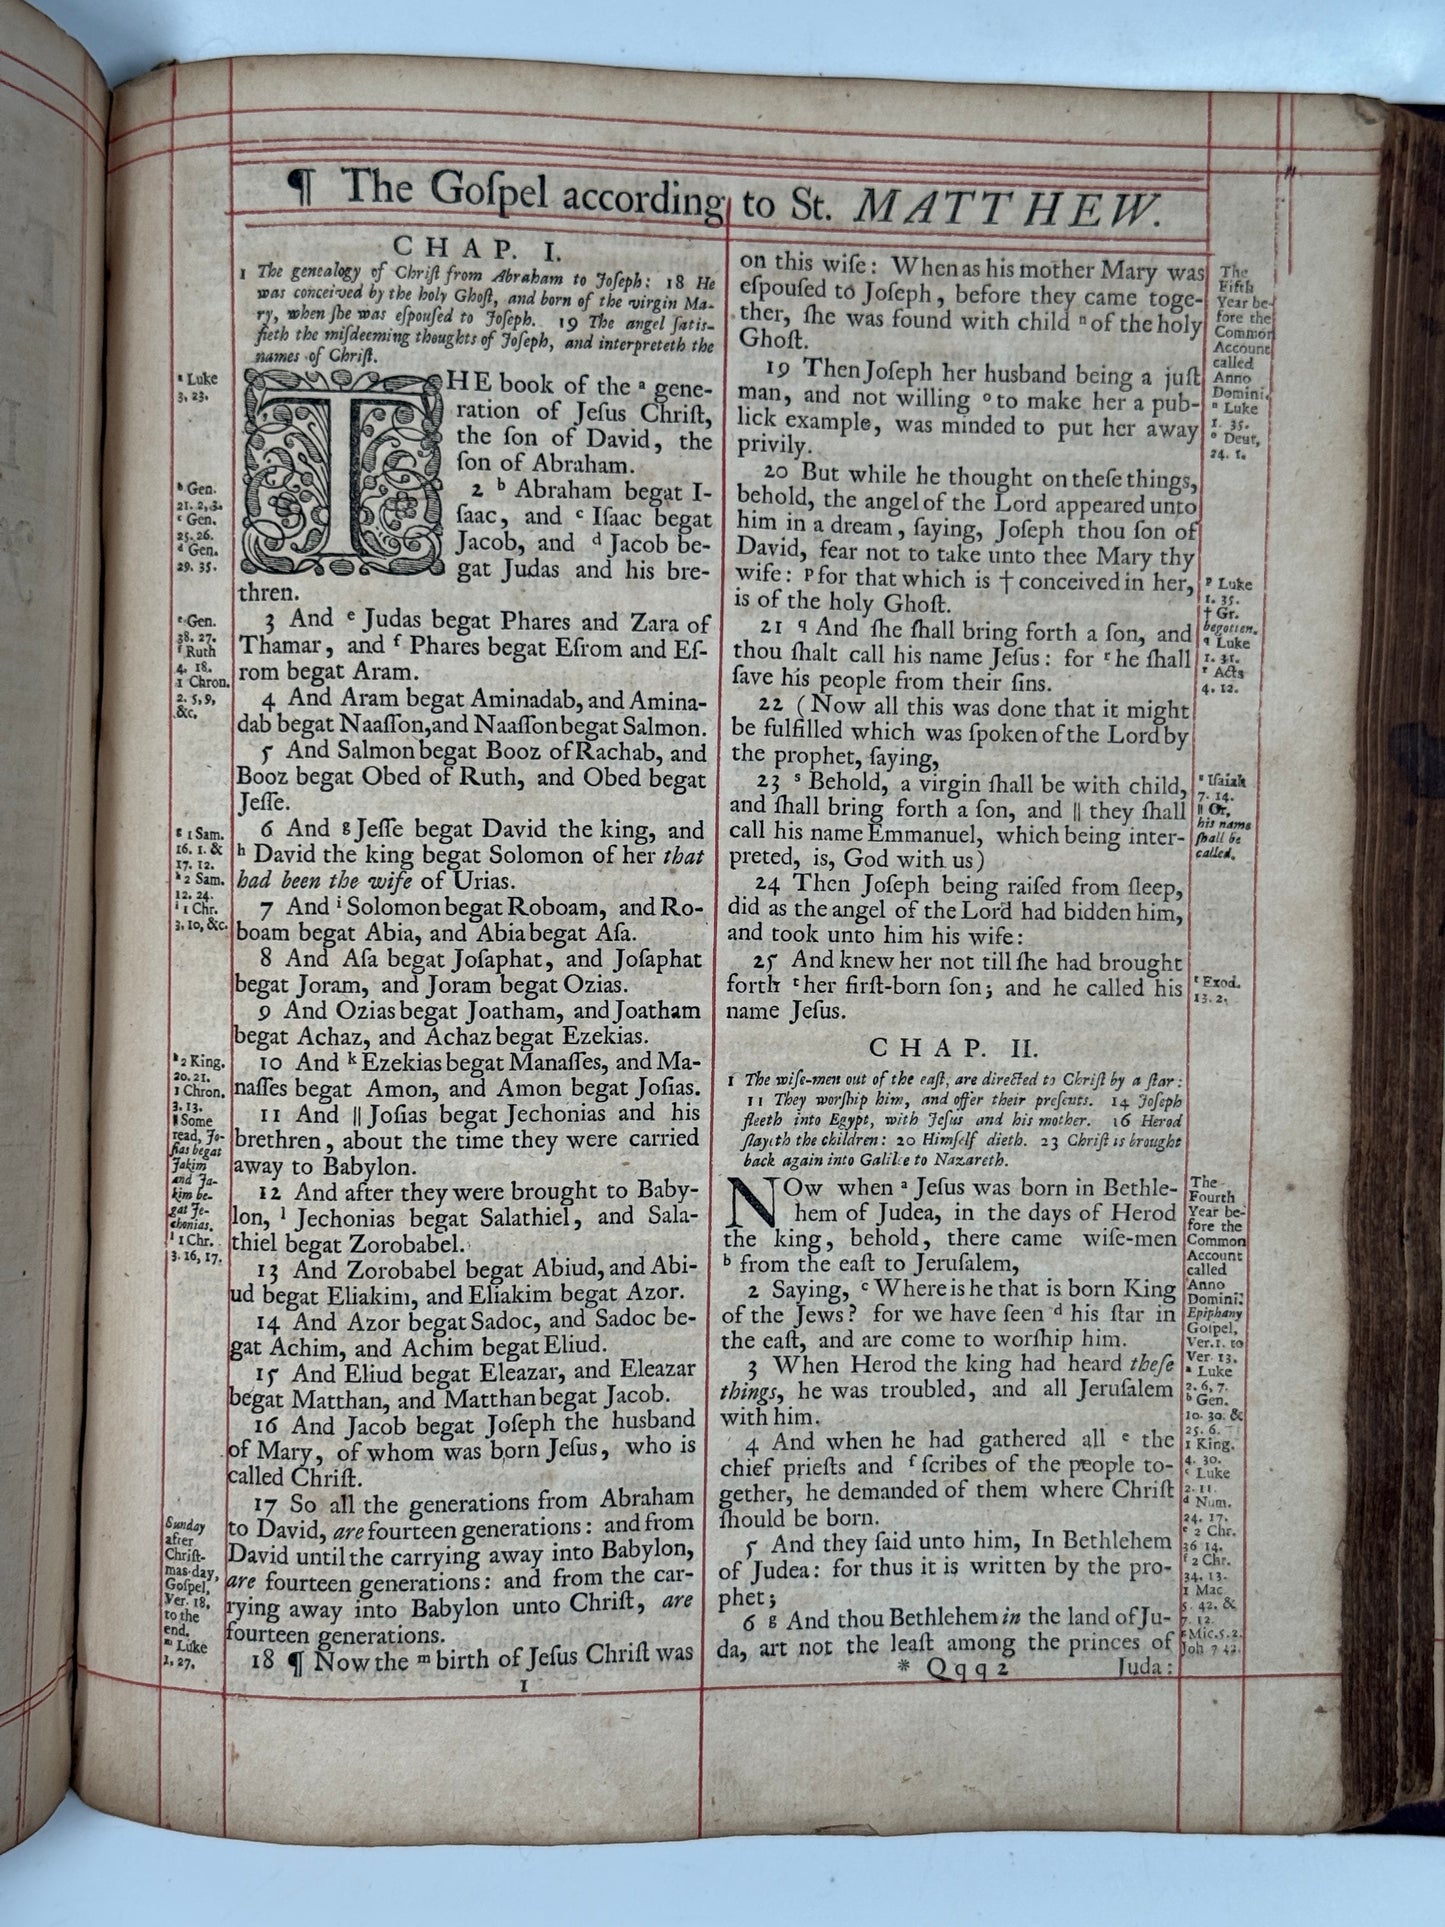 ¶ The Goſpel according to St. MATTHEW.
CHAP. I.
1 The genealogy of Chriſt from Abraham to Joſeph: 18 He
was conceived by the holy Ghoſt, and born of the virgin Ma-
ry, when ſhe was eſpouſed to Joſeph. 19 The angel ſatiſ-
fieth the miſdeeming thoughts of Joſeph, and interpreteth the
names of Chriſt.
THE book of the ᵃ gene-
ration of Jeſus Chriſt,
the ſon of David, the
ſon of Abraham.
2 ᵇ Abraham begat I-
ſaac, and ᶜ Iſaac begat
Jacob, and ᵈ Jacob be-
gat Judas and his bre-
thren.
3 And ᵉ Judas begat Phares and Zara of
Thamar, and ᶠ Phares begat Eſrom and Eſ-
rom begat Aram.
4 And Aram begat Aminadab, and Amina-
dab begat Naaſſon, and Naaſſon begat Salmon.
5 And Salmon begat Booz of Rachab, and
Booz begat Obed of Ruth, and Obed begat
Jeſſe.
6 And ᵍ Jeſſe begat David the king, and
ʰ David the king begat Solomon of her that
had been the wife of Urias.
7 And ⁱ Solomon begat Roboam, and Ro-
boam begat Abia, and Abia begat Aſa.
8 And Aſa begat Joſaphat, and Joſaphat
begat Joram, and Joram begat Ozias.
9 And Ozias begat Joatham, and Joatham
begat Achaz, and Achaz begat Ezekias.
10 And ᵏ Ezekias begat Manaſſes, and Ma-
naſſes begat Amon, and Amon begat Joſias.
11 And ‖ Joſias begat Jechonias and his
brethren, about the time they were carried
away to Babylon.
12 And after they were brought to Baby-
lon, ˡ Jechonias begat Salathiel, and Sala-
thiel begat Zorobabel.
13 And Zorobabel begat Abiud, and Abi-
ud begat Eliakim, and Eliakim begat Azor.
14 And Azor begat Sadoc, and Sadoc be-
gat Achim, and Achim begat Eliud.
15 And Eliud begat Eleazar, and Eleazar
begat Matthan, and Matthan begat Jacob.
16 And Jacob begat Joſeph the husband
of Mary, of whom was born Jeſus, who is
called Chriſt.
17 So all the generations from Abraham
to David, are fourteen generations: and from
David until the carrying away into Babylon,
are fourteen generations: and from the car-
rying away into Babylon unto Chriſt, are
fourteen generations.
18 ¶ Now the ᵐ birth of Jeſus Chriſt was
1
ᵃ Luke
3. 23.
ᵇ Gen.
21. 2, 3.
ᶜ Gen.
25. 26.
ᵈ Gen.
29. 35.
ᵉ Gen.
38. 27.
ᶠ Ruth
4. 18.
1 Chron.
2. 5, 9,
&c.
ᵍ 1 Sam.
16. 1. &
17. 12.
ʰ 2 Sam.
12. 24.
ⁱ 1 Chr.
3, 10, &c.
ᵏ 2 King.
20. 21.
1 Chron.
3. 13.
‖ Some
read, Jo-
ſias begat
Jakim
and Ja-
kim be-
gat Je-
chonias.
ˡ 1 Chr.
3. 16, 17.
Sunday
after
Chriſt-
mas-day,
Goſpel,
Ver. 18,
to the
end.
ᵐ Luke
1. 27.
on this wiſe: When as his mother Mary was
eſpouſed to Joſeph, before they came toge-
ther, ſhe was found with child ⁿ of the holy
Ghoſt.
19 Then Joſeph her husband being a juſt
man, and not willing ᵒ to make her a pub-
lick example, was minded to put her away
privily.
20 But while he thought on theſe things,
behold, the angel of the Lord appeared unto
him in a dream, ſaying, Joſeph thou ſon of
David, fear not to take unto thee Mary thy
wife: ᵖ for that which is † conceived in her,
is of the holy Ghoſt.
21 ᑫ And ſhe ſhall bring forth a ſon, and
thou ſhalt call his name Jeſus: for ʳ he ſhall
ſave his people from their ſins.
22 (Now all this was done that it might
be fulfilled which was ſpoken of the Lord by
the prophet, ſaying,
23 ˢ Behold, a virgin ſhall be with child,
and ſhall bring forth a ſon, and ‖ they ſhall
call his name Emmanuel, which being inter-
preted, is, God with us)
24 Then Joſeph being raiſed from ſleep,
did as the angel of the Lord had bidden him,
and took unto him his wife:
25 And knew her not till ſhe had brought
forth ᵗ her firſt-born ſon; and he called his
name Jeſus.
CHAP. II.
1 The wiſe-men out of the eaſt, are directed to Chriſt by a ſtar:
11 They worſhip him, and offer their preſents. 14 Joſeph
fleeth into Egypt, with Jeſus and his mother. 16 Herod
ſlayeth the children: 20 Himſelf dieth. 23 Chriſt is brought
back again into Galilee to Nazareth.
NOw when ᵃ Jeſus was born in Bethle-
hem of Judea, in the days of Herod
the king, behold, there came wiſe-men
ᵇ from the eaſt to Jeruſalem,
2 Saying, ᶜ Where is he that is born King
of the Jews? for we have ſeen ᵈ his ſtar in
the eaſt, and are come to worſhip him.
3 When Herod the king had heard theſe
things, he was troubled, and all Jeruſalem
with him.
4 And when he had gathered all ᵉ the
chief prieſts and ᶠ ſcribes of the people to-
gether, he demanded of them where Chriſt
ſhould be born.
5 And they ſaid unto him, In Bethlehem
of Judea: for thus it is written by the pro-
phet;
6 ᵍ And thou Bethlehem in the land of Ju-
da, art not the leaſt among the princes of
* Qqq 2 Juda:
The
Fifth
Year be-
fore the
Common
Account
called
Anno
Domini.
ⁿ Luke
1. 35.
ᵒ Deut.
24. 1.
ᵖ Luke
1. 35.
† Gr.
begotten.
ᑫ Luke
1. 31.
ʳ Acts
4. 12.
ˢ Iſaiah
7. 14.
‖ Or,
his name
ſhall be
called.
ᵗ Exod.
13. 2.
The
Fourth
Year be-
fore the
Common
Account
called
Anno
Domini.
Epiphany
Goſpel,
Ver. 1. to
Ver. 13.
ᵃ Luke
2. 6, 7.
ᵇ Gen.
10. 30. &
25. 6.
1 King.
4. 30.
ᶜ Luke
2. 11.
ᵈ Num.
24. 17.
ᵉ 2 Chr.
36 14.
ᶠ 2 Chr.
34. 13.
1 Mac
5. 42. &
7. 12.
ᵍ Mic. 5. 2.
Joh 7 42.